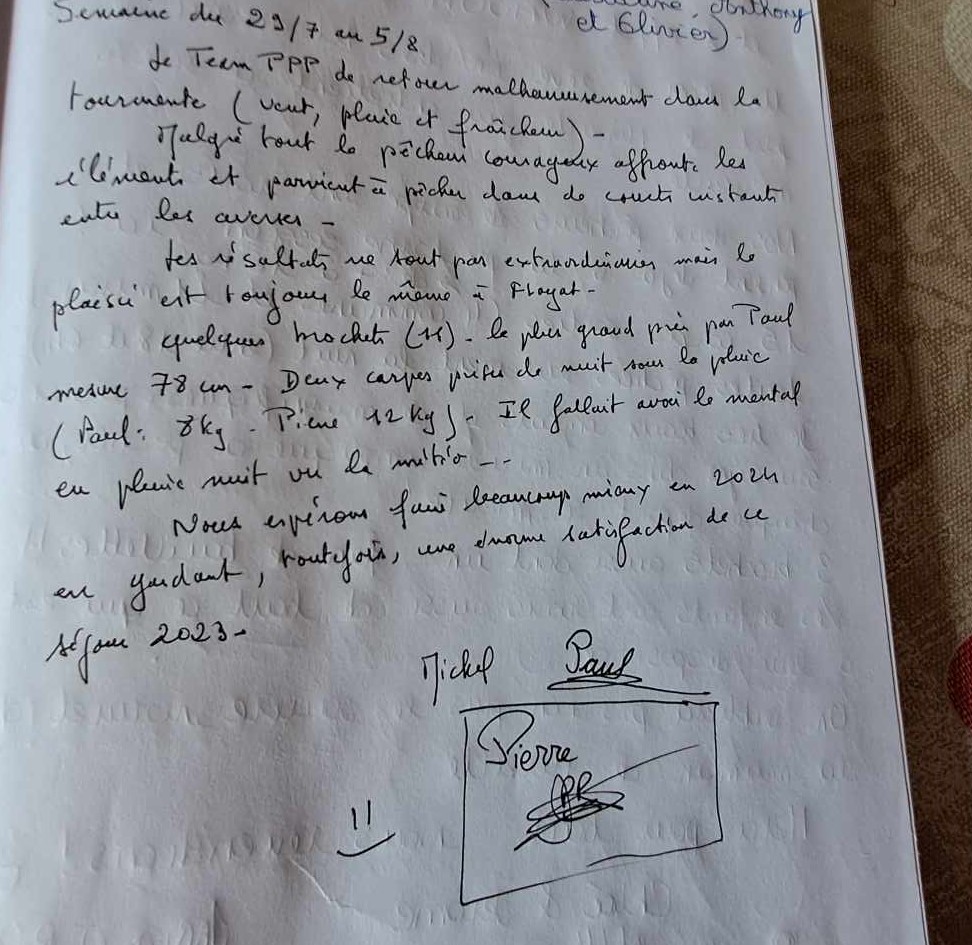 Anthony
et Olivier)
Semaine du 29/7 au 5/8
Le Team PPP de retour malheureusement dans la
tourmente (vent, pluie et fraîcheur) -
Malgré tout le pêcheur courageux affronte les
éléments et parvient à pêcher dans de courts instants
entre les averses -
Les résultats ne sont pas extraordinaires mais le
plaisir est toujours le même à Floyat -
quelques brochets (11). Le plus grand pris par Paul
mesure 78 cm - Deux carpes prises de nuit sous la pluie
(Paul: 8kg - Pierre 12 kg). Il fallait avoir le mental
en pleine nuit vu la météo --
Nous espérons faire beaucoup mieux en 2024
en gardant, toutefois, une énorme satisfaction de ce
séjour 2023 -
Michel Paul
Pierre